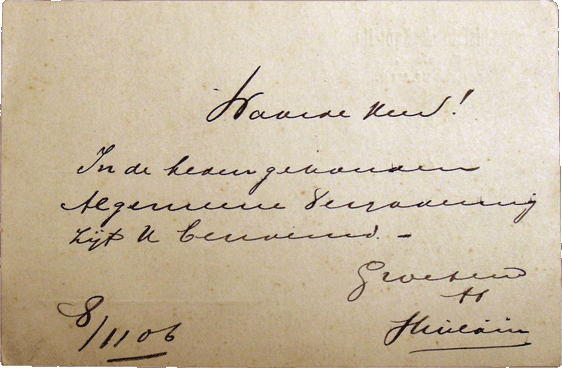 Waarde Heer!
In de heden gehouden
Algemeene Vergadering
zijt U benoemd. -
Groetend
8/11 06